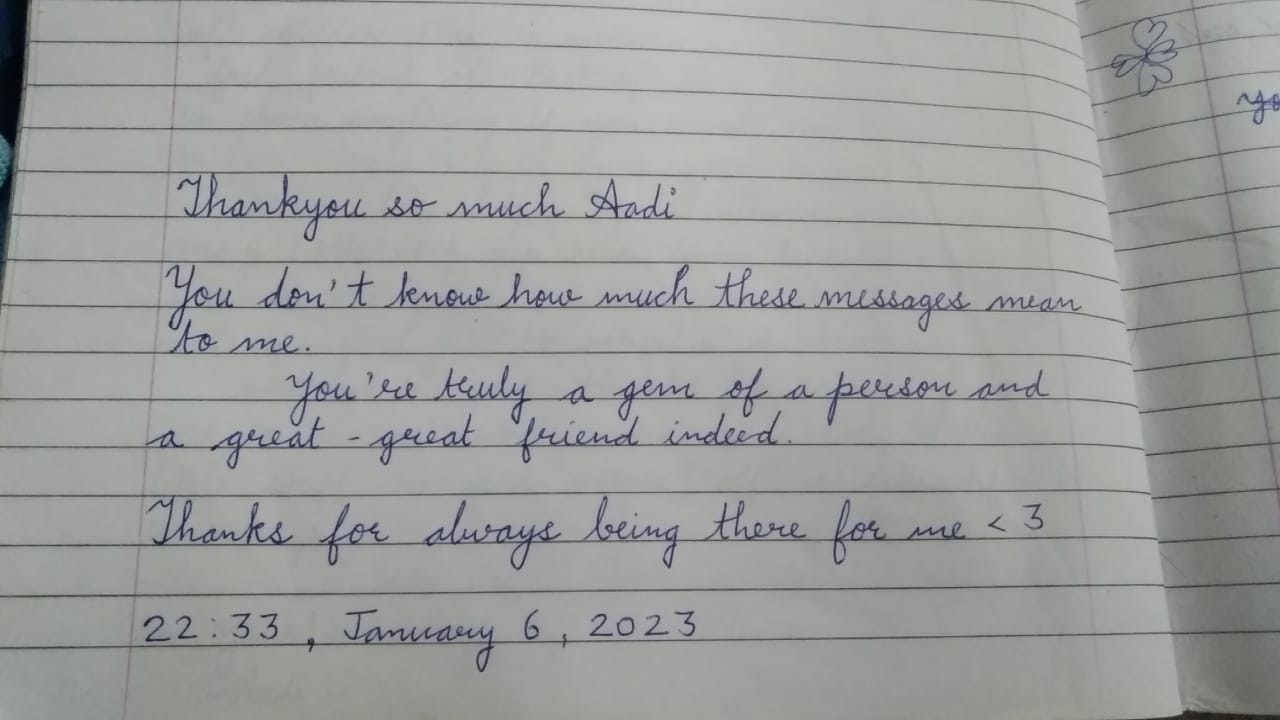 Thankyou so much Aadi
You don't know how much these messages mean
to me.
You're truly a gem of a person and
a great - great friend indeed.
Thanks for always being there for me < 3
22:33 , January 6 , 2023